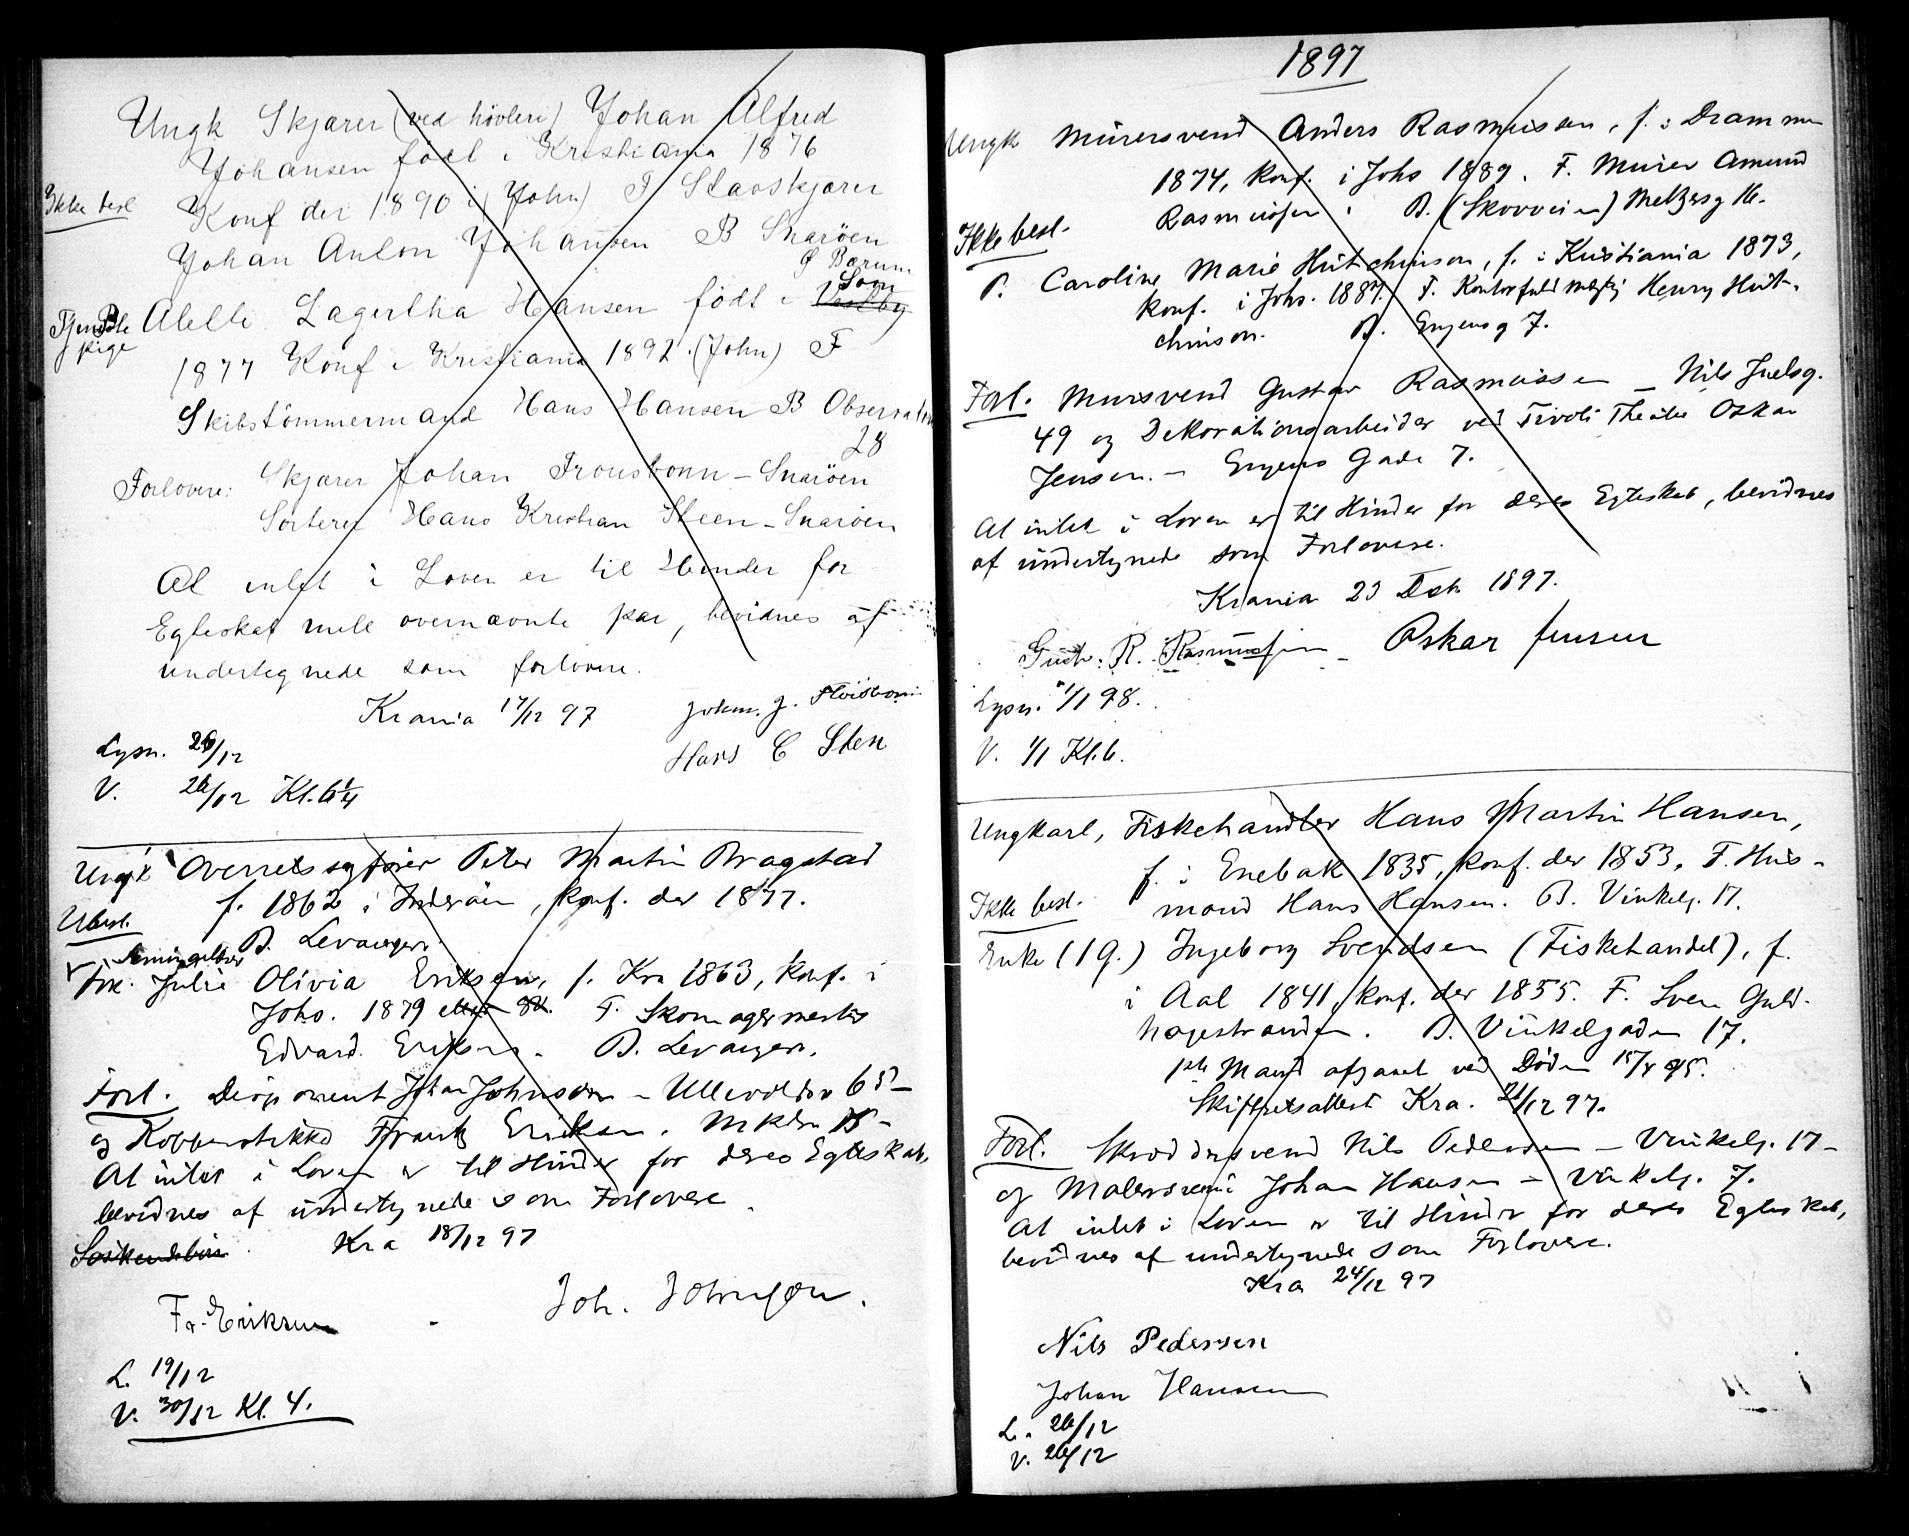 Ungk Skjærer (ved høvleri) Johan Alfred
Johansen född i Kristiania 1876
Ikke besl
Konf der 1890 i (John) F Stavskjærer
Johan Anton Johansen B Snarøen
P Bærum
Som
Tjeneste
pige
Alette Lagertha Hansen födt i Vestby
1877 Konf i Kristiania 1892 (John) F
Skibstömmermand Hans Hansen B Observatori
28
Forlovere: Skjærer Johan Fronsbonn - Snarøen
Sorterer Hans Kristian Steen - Snarøen
At intet i Loven er til Hinder for
Egteskab mell ovennævnte par, bevidnes af
undertegnede som forlovere.
Krania 17/12 97
Johan. J.
Hans C Sten
Lysn. 26/12
V. 26/12 Kl. 6 1/4
Ungk Overretssagfører Peter Martin Bragstad
f. 1862 i Inderøen, konf. der 1877.
Ubesl.
B. Levanger.
Frk. Julie Olivia Eriksen, f. Kra 1863, konf. i
Johs. 1879 eller 80. F. Skomagermester
Edvard Eriksen. B. Levanger.
Forl. Disponent Johan Johnson - Ullevoldsv 65 -
og Kobberstikker Frantz Eriksen.
At intet i Loven er til Hinder for deres Egteskab,
bevidnes af undertegnede som Forlovere.
Söskendebörn
Kra 18/12 97
Fr. Eriksen - Joh. Johnson.
L. 19/12
V. 30/12 Kl. 4.
1897
Ungk Murersvend Anders Rasmussen, f. i Drammen
1874, konf. i Johs 1889. F. Murer Amund
Rasmussen. B. (Skovveien) Meltzersg 16.
Ikke besl.
P. Caroline Marie Hutchinson, f. i Kristiania 1873,
konf. i Johs. 1887. F. Kontorfuldmægtig Henry Hut-
chinson. B. Engensg 7.
Forl. Mursvend Gustav Rasmussen - Nils Juelsg.
49 og Dekorationsarbeider ved Tivoli Theater Oskar
Jensen. - Engens Gade 7.
At intet i Loven er til Hinder for deres Egteskab, bevidnes
af undertegnede som Forlovere.
Krania 23 Dcb 1897.
Gust. R. Rasmussen - Oskar Jensen
Lysn. 1/1 98.
V. 1/1 Kl. 6.
Ungkarl, Fiskehandler Hans Martin Hansen,
f. i Enebak 1835, konf. der 1853. F. Hus-
mand Hans Hansen. B. Vinkelg. 17.
Ikke besl.
Enke (1 G.) Ingeborg Svendsen (Fiskehandel), f.
i Aal 1841, konf. der 1855. F. Sven Guld-
hagestranden. B. Vinkelgaden 17.
1ste Mand afgaaet ved Døden 15/8 95.
Skifteretsattest Kra. 21/12 97.
Forl. Skræddersvend Nils Pedersen - Vinkelg. 17 -
og Malersvend Johan Hansen - Vinkelg. 7.
At intet i Loven er til Hinder for deres Egteskab,
bevidnes af undertegnede som Forlovere.
Kra 24/12 97
Nils Pederssen
Johan Hansen
L. 26/12
V. 26/12